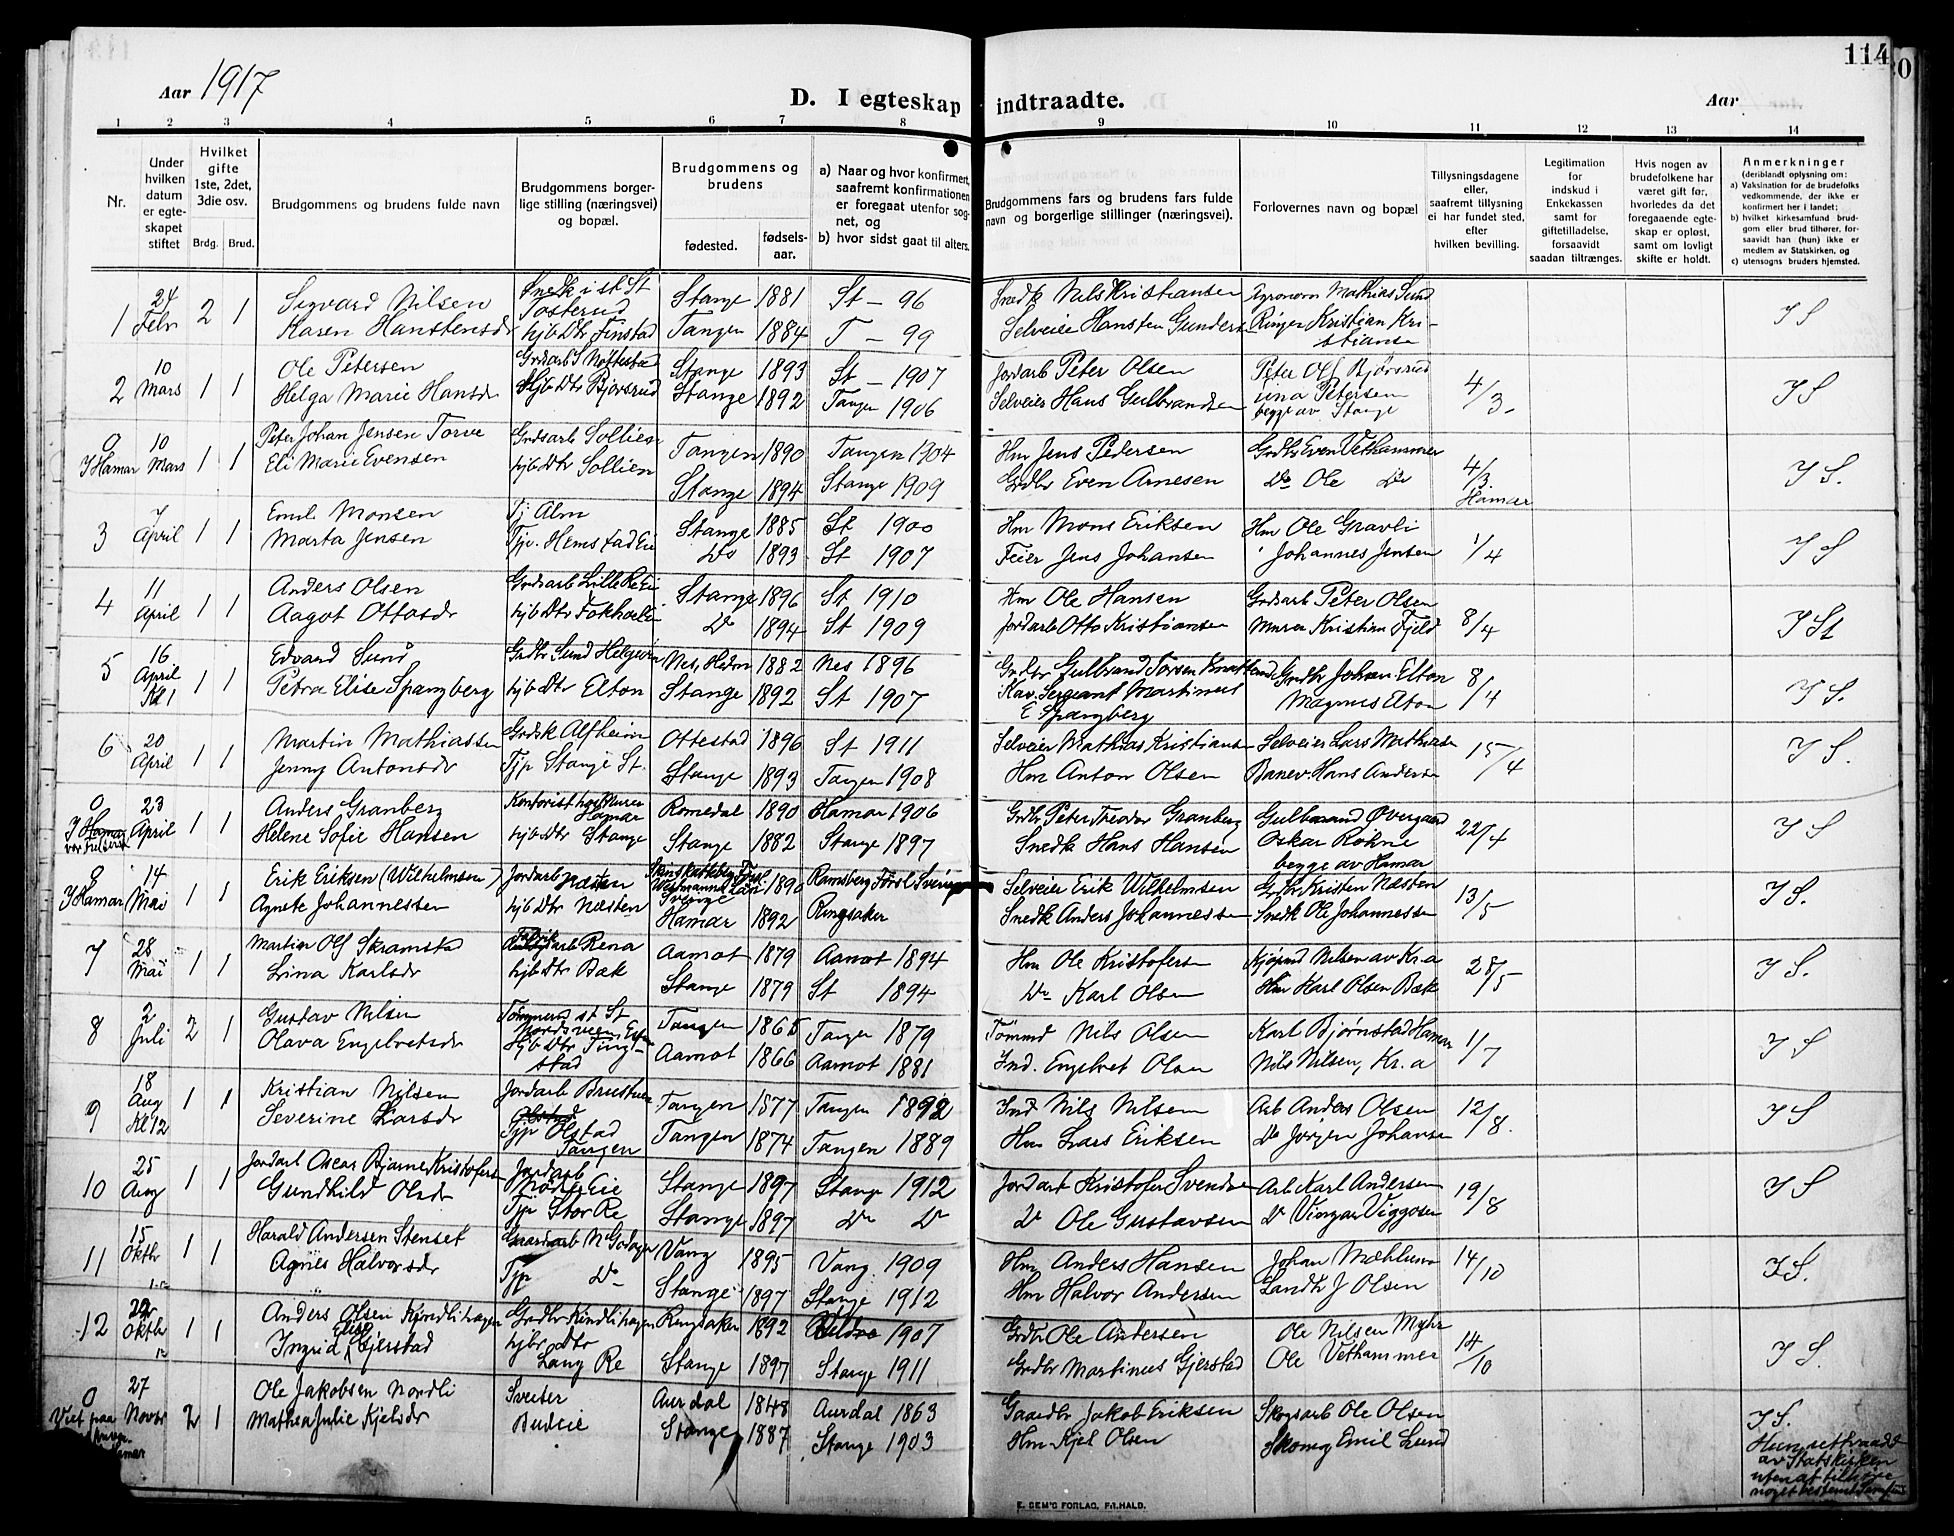 114
Aar 1917
D. I egteskap indtraadte.
Aar
1 2 3 4 5 6 7 8 9 10 11 12 13 14
Nr.
Under hvilken datum er egteskapet stiftet
Hvilket gifte 1ste, 2det, 3die osv.
Brdg. Brud.
Brudgommens og brudens fulde navn
Brudgommens borgerlige stilling (næringsvei) og bopæl.
Brudgommens og brudens
fødested.
fødselsaar.
a) Naar og hvor konfirmert, saafremt konfirmationen er foregaat utenfor sognet, og
b) hvor sidst gaat til alters.
Brudgommens fars og brudens fars fulde navn og borgerlige stillinger (næringsvei).
Forlovernes navn og bopæl
Tillysningsdagene eller, saafremt tillysning ei har fundet sted, efter hvilken bevilling.
Legitimation for indskud i Enkekassen samt for giftetilladelse, forsaavidt saadan tiltrænges.
Hvis nogen av brudefolkene har været gift før, hvorledes da det foregaaende egteskap er opløst, samt om lovligt skifte er holdt.
Anmerkninger (deriblandt oplysning om:
a) Vaksination for de brudefolks vedkommende, der ikke er konfirmert her i landet;
b) hvilket kirkesamfund brudgom eller brud tilhører, forsaavidt han (hun) ikke er medlem av Statskirken, og
c) utensogns bruders hjemsted.
1 24 Febr 2 1 Sigvard Nilsen Snedk i st St Tosterud Stange 1881 St - 96 Snedk Nils Kristiansen Agronom Mathias Sund I S
Karen Hanstensdr hjb Dtr Finstad Tangen 1884 T - 99 Selveier Hansten Gunders Ringer Kristian Kristianse
2 10 Mars 1 1 Ole Petersen Stange 1893 St - 1907 Jordarb Peter Olsen Peter Ols Bjørsrud 4/3 I S
Helga Marie Hansdr Hjb Dtr Bjørsrud Stange 1892 Tangen 1906 Selveier Hans Gulbrandsen Petersen begge av Stange
0 I Hamar 10 Mars 1 1 Peter Johan Jensen Torve Grdsarb Sollien Tangen 1890 Tangen 1904 Hm Jens Pedersen Grdbr Even Vethammer 4/3 Hamar I S.
Eli Marie Evensen hjb Dtr Sollien Stange 1894 Stange 1909 Grdbr Even Arnesen Do Ole Do
3 7 April 1 1 Emil Monsen Tj Alm Stange 1885 St 1900 Hm Mons Eriksen Hm Ole Gravli 1/4 I S
Marta Jensen Tje. Hemstad Eie Do 1893 St 1907 Feier Jens Johansen Johannes Jensen
4 11 April 1 1 Anders Olsen Grdsarb Lille Re Eie Stange 1896 St 1910 Hm Ole Hansen Grdsarb Peter Olsen 8/4 I St
Aagot Ottosdr hjb Dtr Do 1894 St 1909 Jordarb Otto Kristiansen Murer Kristian Fjeld
5 16 April Kl 1 1 1 Edvard Sund Grdbr Sund Helgøen Nes, Hedm 1882 Nes 1896 Grdbr Gulbrand Grdbr Johan Elton 8/4 I S.
Petra Elise Spangberg hjb Dtr Elton Stange 1892 St 1907 Kav. Sergeant Martinus E Spangberg Magnus Elton
6 20 April 1 1 Martin Mathiassen Grdsk Alfheim Ottestad 1896 St 1911 Selveier Mathias Kristianse Selveier Lars Mathisen 15/4 I S.
Jenny Antonsdr Tjp Stange St. Stange 1893 Tangen 1908 Hm Anton Olsen Banev. Hans Anderse
0 I Hamar 23 April 1 1 Anders Granberg Kontorist Hamar Romedal 1890 Hamar 1906 Grdbr Peter Theodor Granberg Gulbrand Øvergaard 22/4 I S
Helene Sofie Hansen hjb Dtr Stange Stange 1882 Stange 1897 Snedk Hans Hansen Oskar Rohne begge av Hamar
0 I Hamar 14 Mai 1 1 Erik Eriksen (Wilhelmsen) Jordarb Næsten Sverige 1890 Ramsberg Førsl Sverige Selveier Erik Wilhelmsen Grdbr Kristen Næsten 13/5 I S.
Agnete Johannessen hjb Dtr Næsten Hamar 1892 Ringsaker Snedk Anders Johannesse Snedk Ole Johannesse
7 28 Mai 1 1 Martin Ols Skramsta Rena Aamot 1879 Aamot 1894 Hm Ole Kristofers Kjøpmd Nilsen av Kr.a 28/5 I S.
Lina Karlsdr hjb Dtr Bæk Stange 1879 St 1894 Do Karl Olsen Hm Karl Olsen Bæk
8 2 Juli 2 1 Gustav Nilsen Tømmerm st St Tangen 1865 Tangen 1879 Tømmd Nils Olsen Karl Bjørnstad Hamar 1/7 I S
Olava Engebretsdr Hjb Dtr Tingstad Aamot 1866 Aamot 1881 Ind. Engebret Olsen Nils Nilsen, Kr.a
9 18 Aug Kl 12 1 1 Kristian Nilsen Jordarb Tangen 1877 Tangen 1892 Ind Nils Nilsen Arb Anders Olsen 12/8. I S
Severine Larsdr Tjp Olstad Tangen Tangen 1874 Tangen 1889 Hm Lars Eriksen Do Jørgen Johanse
10 25 Aug 1 1 Jordarb Oscar Bjarne Kristofers Jordarb Eie Stange 1897 Stange 1912 Jordarb Kristofer Svendse Arb Karl Andersen 19/8 I S
Gundhild Olsdr Tjp Stor Re Stange 1897 Do Do Do Ole Gustavsen Do Viggosen
11 15 Oktbr 1 1 Harald Andersen Stenset Gaardarb N Godager Vang 1895 Vang 1909 Hm Anders Hansen Johan Mæhlum 14/10 I S.
Agnes Halvorsdr Tjp Do Stange 1897 Stange 1912 Hm Halvor Andersen Landbr J Olsen
12 Oktbr 1 1 Anders Olsen Kindlihagen Grdbr Kindlihagen Ringsaker 1892 1907 Grdbr Ole Andersen Ole Nilsen Myhr 14/10 I S.
Ingrid Elise Gjerstad hjbr dtr Lang Re Stange 1897 Stange 1911 Grdbr Martinus Gjerstad Ole Vethammer
0 Viet paa Hamar 27 Novbr 2 1 Ole Jakobsen Nordli Sveiser Aurdal 1848 Aurdal 1863 Gaardbr Jakob Eriksen Skogsarb Ole Olsen I S.
Mathea Julie Kjelsdr Budeie Stange 1887 Stange 1903 Hm Kjel Olsen Skomg Emil Lund Hun uttraadt av Statskirken uten at tilhøre noget bestemt Samfund
E. SEM'S FORLAG, FR.HALD.